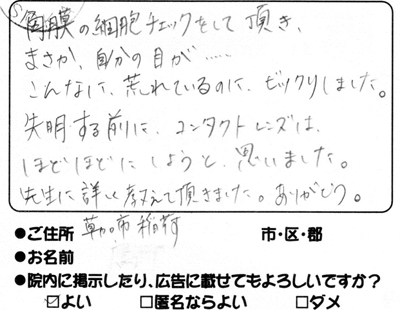 角膜の細胞チェックをして頂き、
まさか、自分の目が……
こんなに、荒れているのに、ビックリしました。
失明する前に、コンタクトレンズは、
ほどほどにしようと、思いました。
先生に詳しく教えて頂きました。ありがとう。
●ご住所 草加市稲荷 市・区・郡
●お名前
●院内に掲示したり、広告に載せてもよろしいですか?
☑よい □匿名ならよい □ダメ